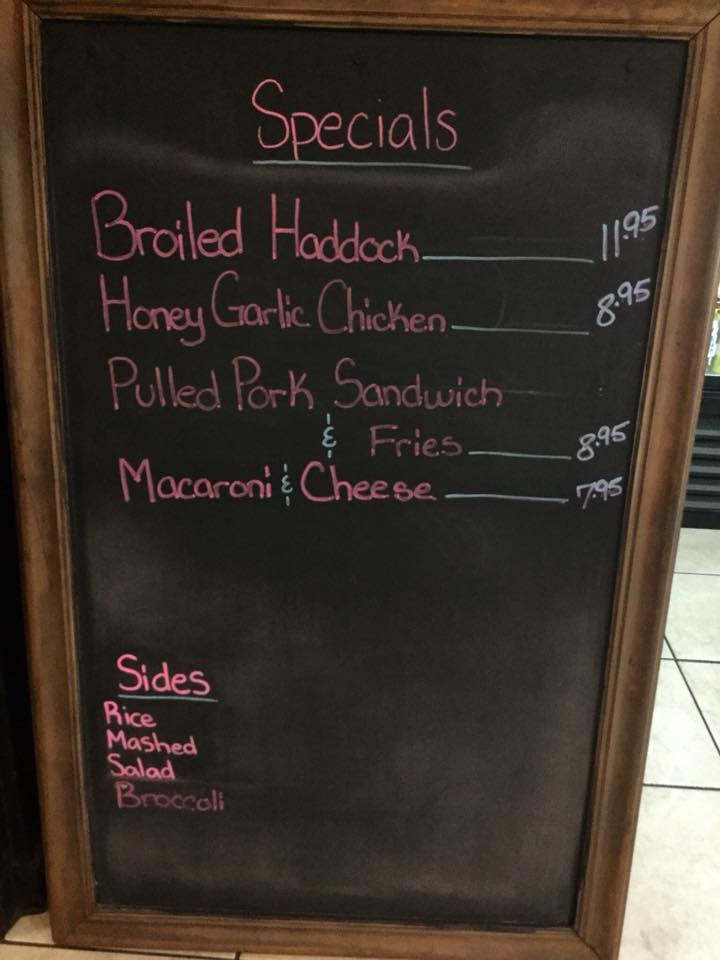 Specials
Broiled Haddock 11.95
Honey Garlic Chicken 8.95
Pulled Pork Sandwich
& Fries 8.95
Macaroni & Cheese 7.95
Sides
Rice
Mashed
Salad
Broccoli